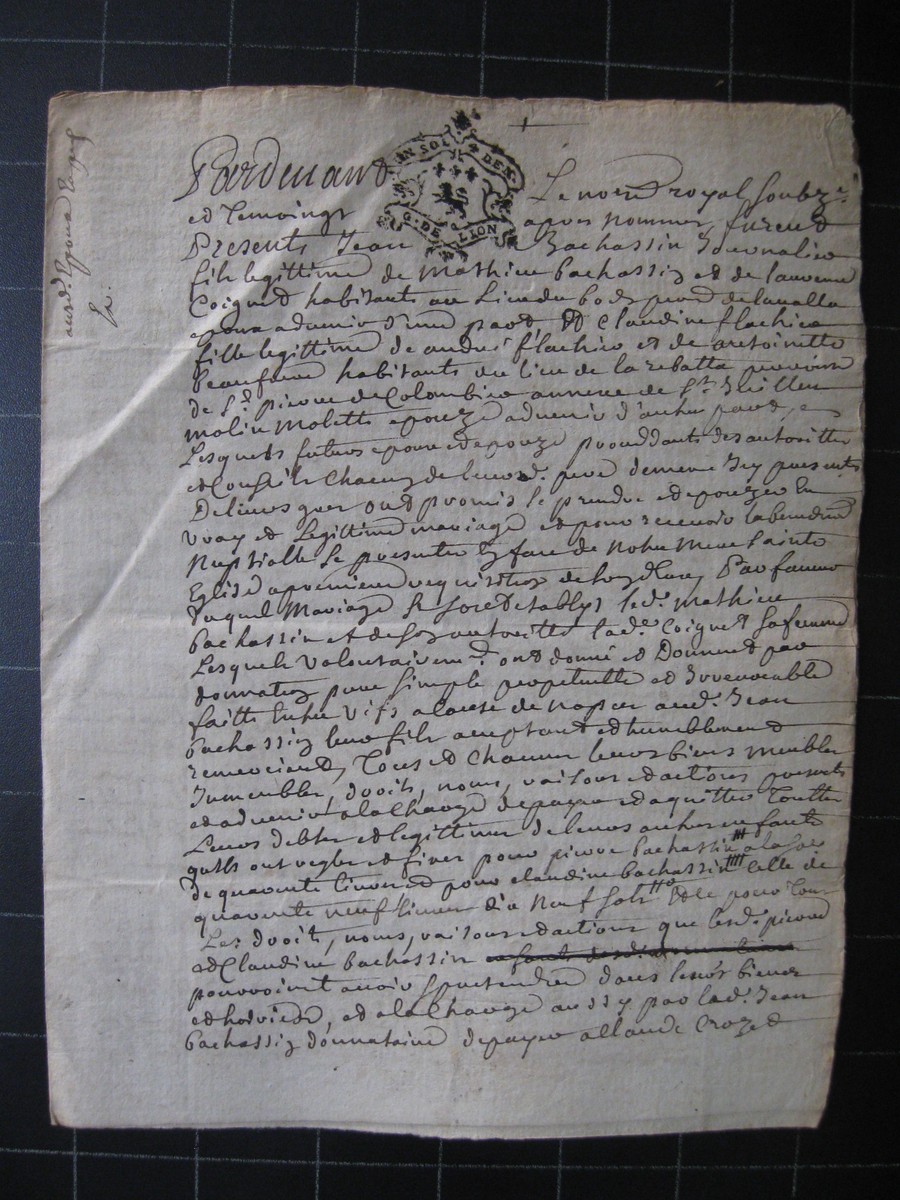 Pardevant Le notre royal soubz.ne
UN SOL DE
G. DE LION
et temoings apres nommes furent
Presents Jean Bachassin Journalier
fils legittime de Mathieu bachassin et de
Coignet habitants au Lieu du parr. de lavalla
epoux advenir d'une part, Et Claudine flachier
fille legittime de andré flachier et de antoinette
habitants au lieu de la rebatte parroisse
de St. pierre de Colombier annexe de St. Jullien
molin Molette epouze advenir d'autre part,
Lesquels futurs epoux et epouze proceddants des autorittes
et Conseils Chacun de leursd. pere et mere Icy presents
De leurs grez ont promis se prendre et epouzer En
vray et Legittime mariage et pour recevoir la benediction
Nuptialle se presenter En face de Notre Mere Sainte
Eglise a premiere requisition de En faveur
duquel Mariage se sont Etablys led. Mathieu
bachassin et de son autoritté lad. Coignet sa femme
Lesquels Volontairement ont donné et Donnent par
donnation pure simple perpetuelle et Irrevocable
faitte Entre Vifs a cause de nopces aud. Jean
bachassin leur fils acceptant et humblement
remerciant, Tous et Chacuns leurs biens meubles
Immeubles, droits, noms, raisons et actions presents
et advenir a la Charge de payer et aquitter Touttes
Leurs debtes et legittimes de leurs autres enfants
quils ont regles et fixes pour pierre bachassin a la somme
de quarante livres et pour claudine bachassin celle de
quarante neuf livres dix Neuf sols Et ce pour Tous
Les droits, noms, raisons et actions que lesd. pierre
et Claudine bachassin
pourroient avoir et pretendre dans leurs biens
et hoiries, et a la Charge aussy par led. Jean
bachassin donnataire de payer a Claude Crozet